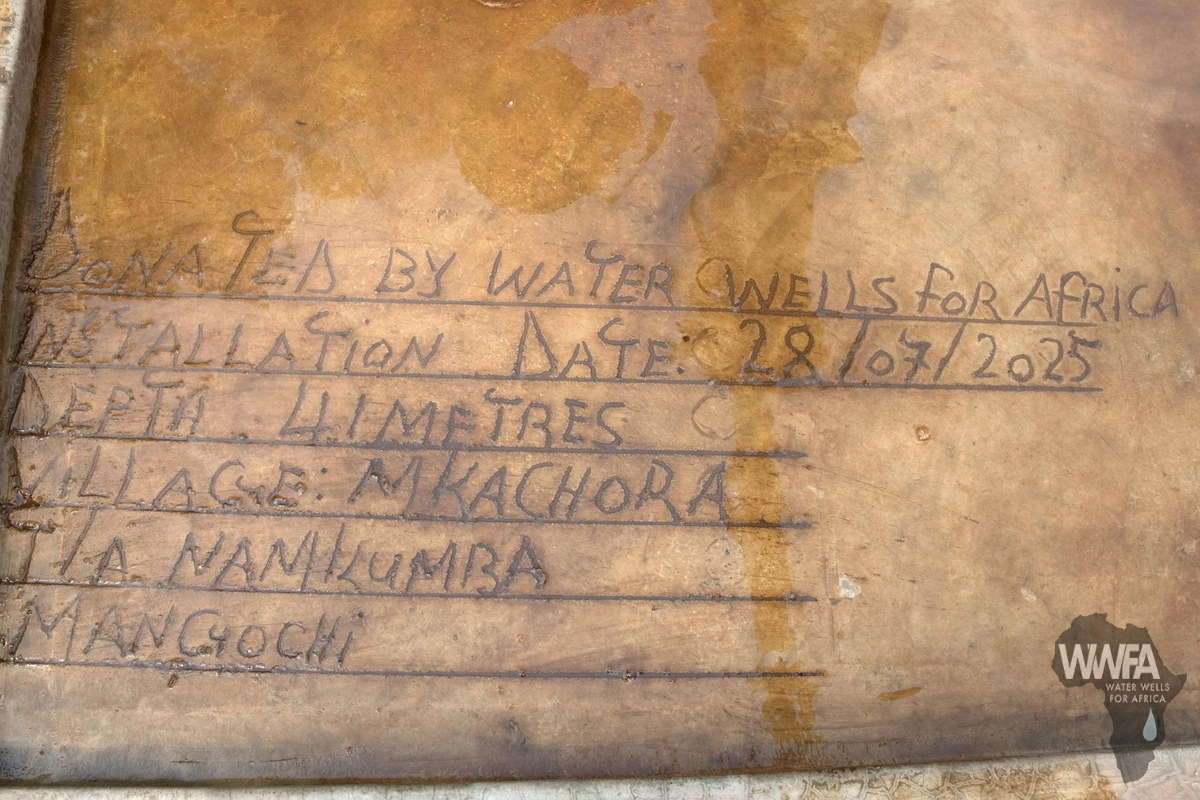 DONATED BY WATER WELLS FOR AFRICA
INSTALLATION DATE: 28/07/2025
DEPTH 41 METRES
VILLAGE: MKACHORA
T/A NAMKUMBA
MANGOCHi
WWFA
WATER WELLS
FOR AFRICA